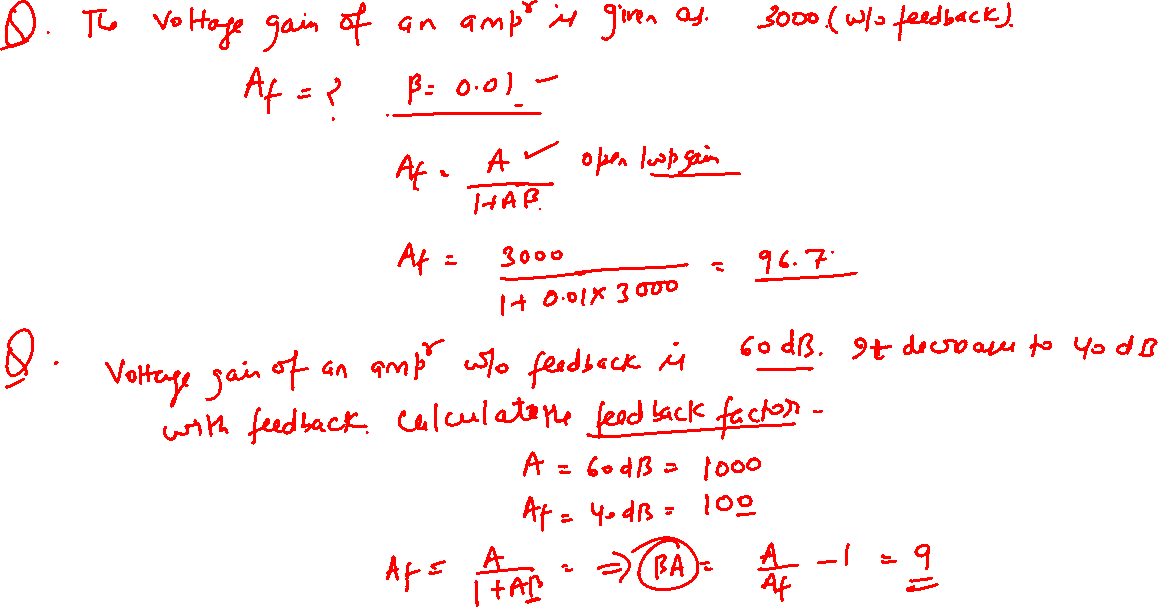 Q. The voltage gain of an ampr is given as. 3000.(w/o feedback).
Af = ? β = 0.01
Af = A / 1+Aβ open loop gain
Af = 3000 / 1+ 0.01x 3000 = 96.7
Q. Voltage gain of an ampr w/o feedback is 60 dB. It decreases to 40 dB
with feedback. Calculate the feedback factor -
A = 60dB = 1000
Af = 40dB = 100
Af = A / 1+Aβ = ⇒ βA = A / Af - 1 = 9